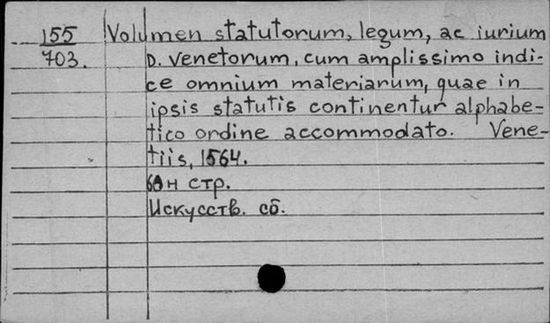 155 Volumen statutorum, legum, ac iurium
703. D. Venetorum, cum amplissimo indi-
ce omnium materiarum, quae in
ipsis statutis continentur alphabe-
tico ordine accommodato. Vene-
tiis, 1564.
стр.
Искусств. сб.